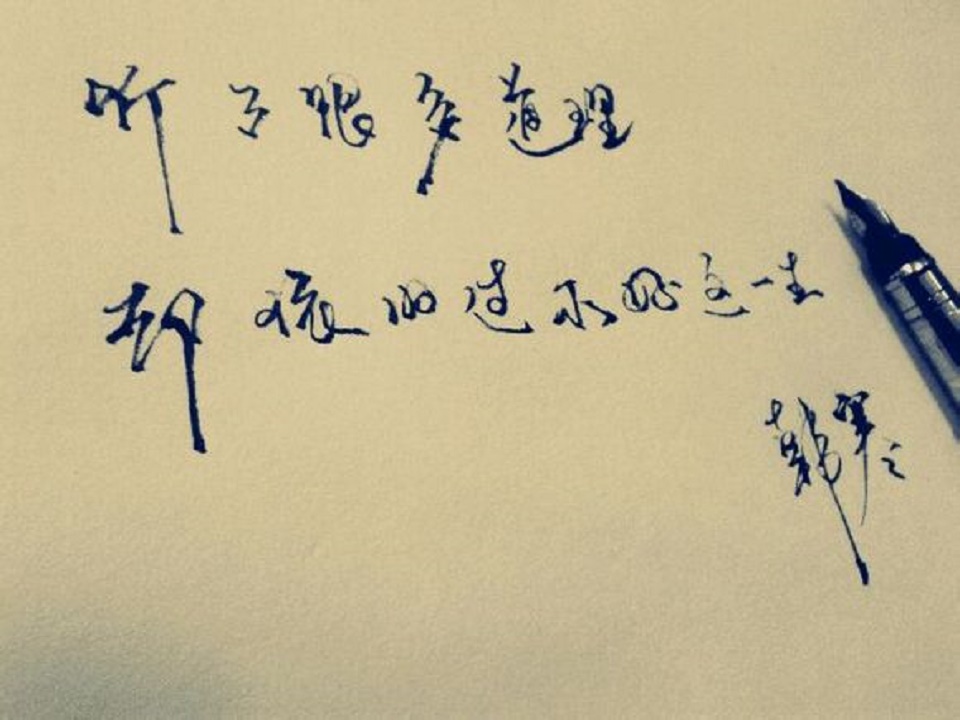 听了很多道理
却依旧过不好这一生